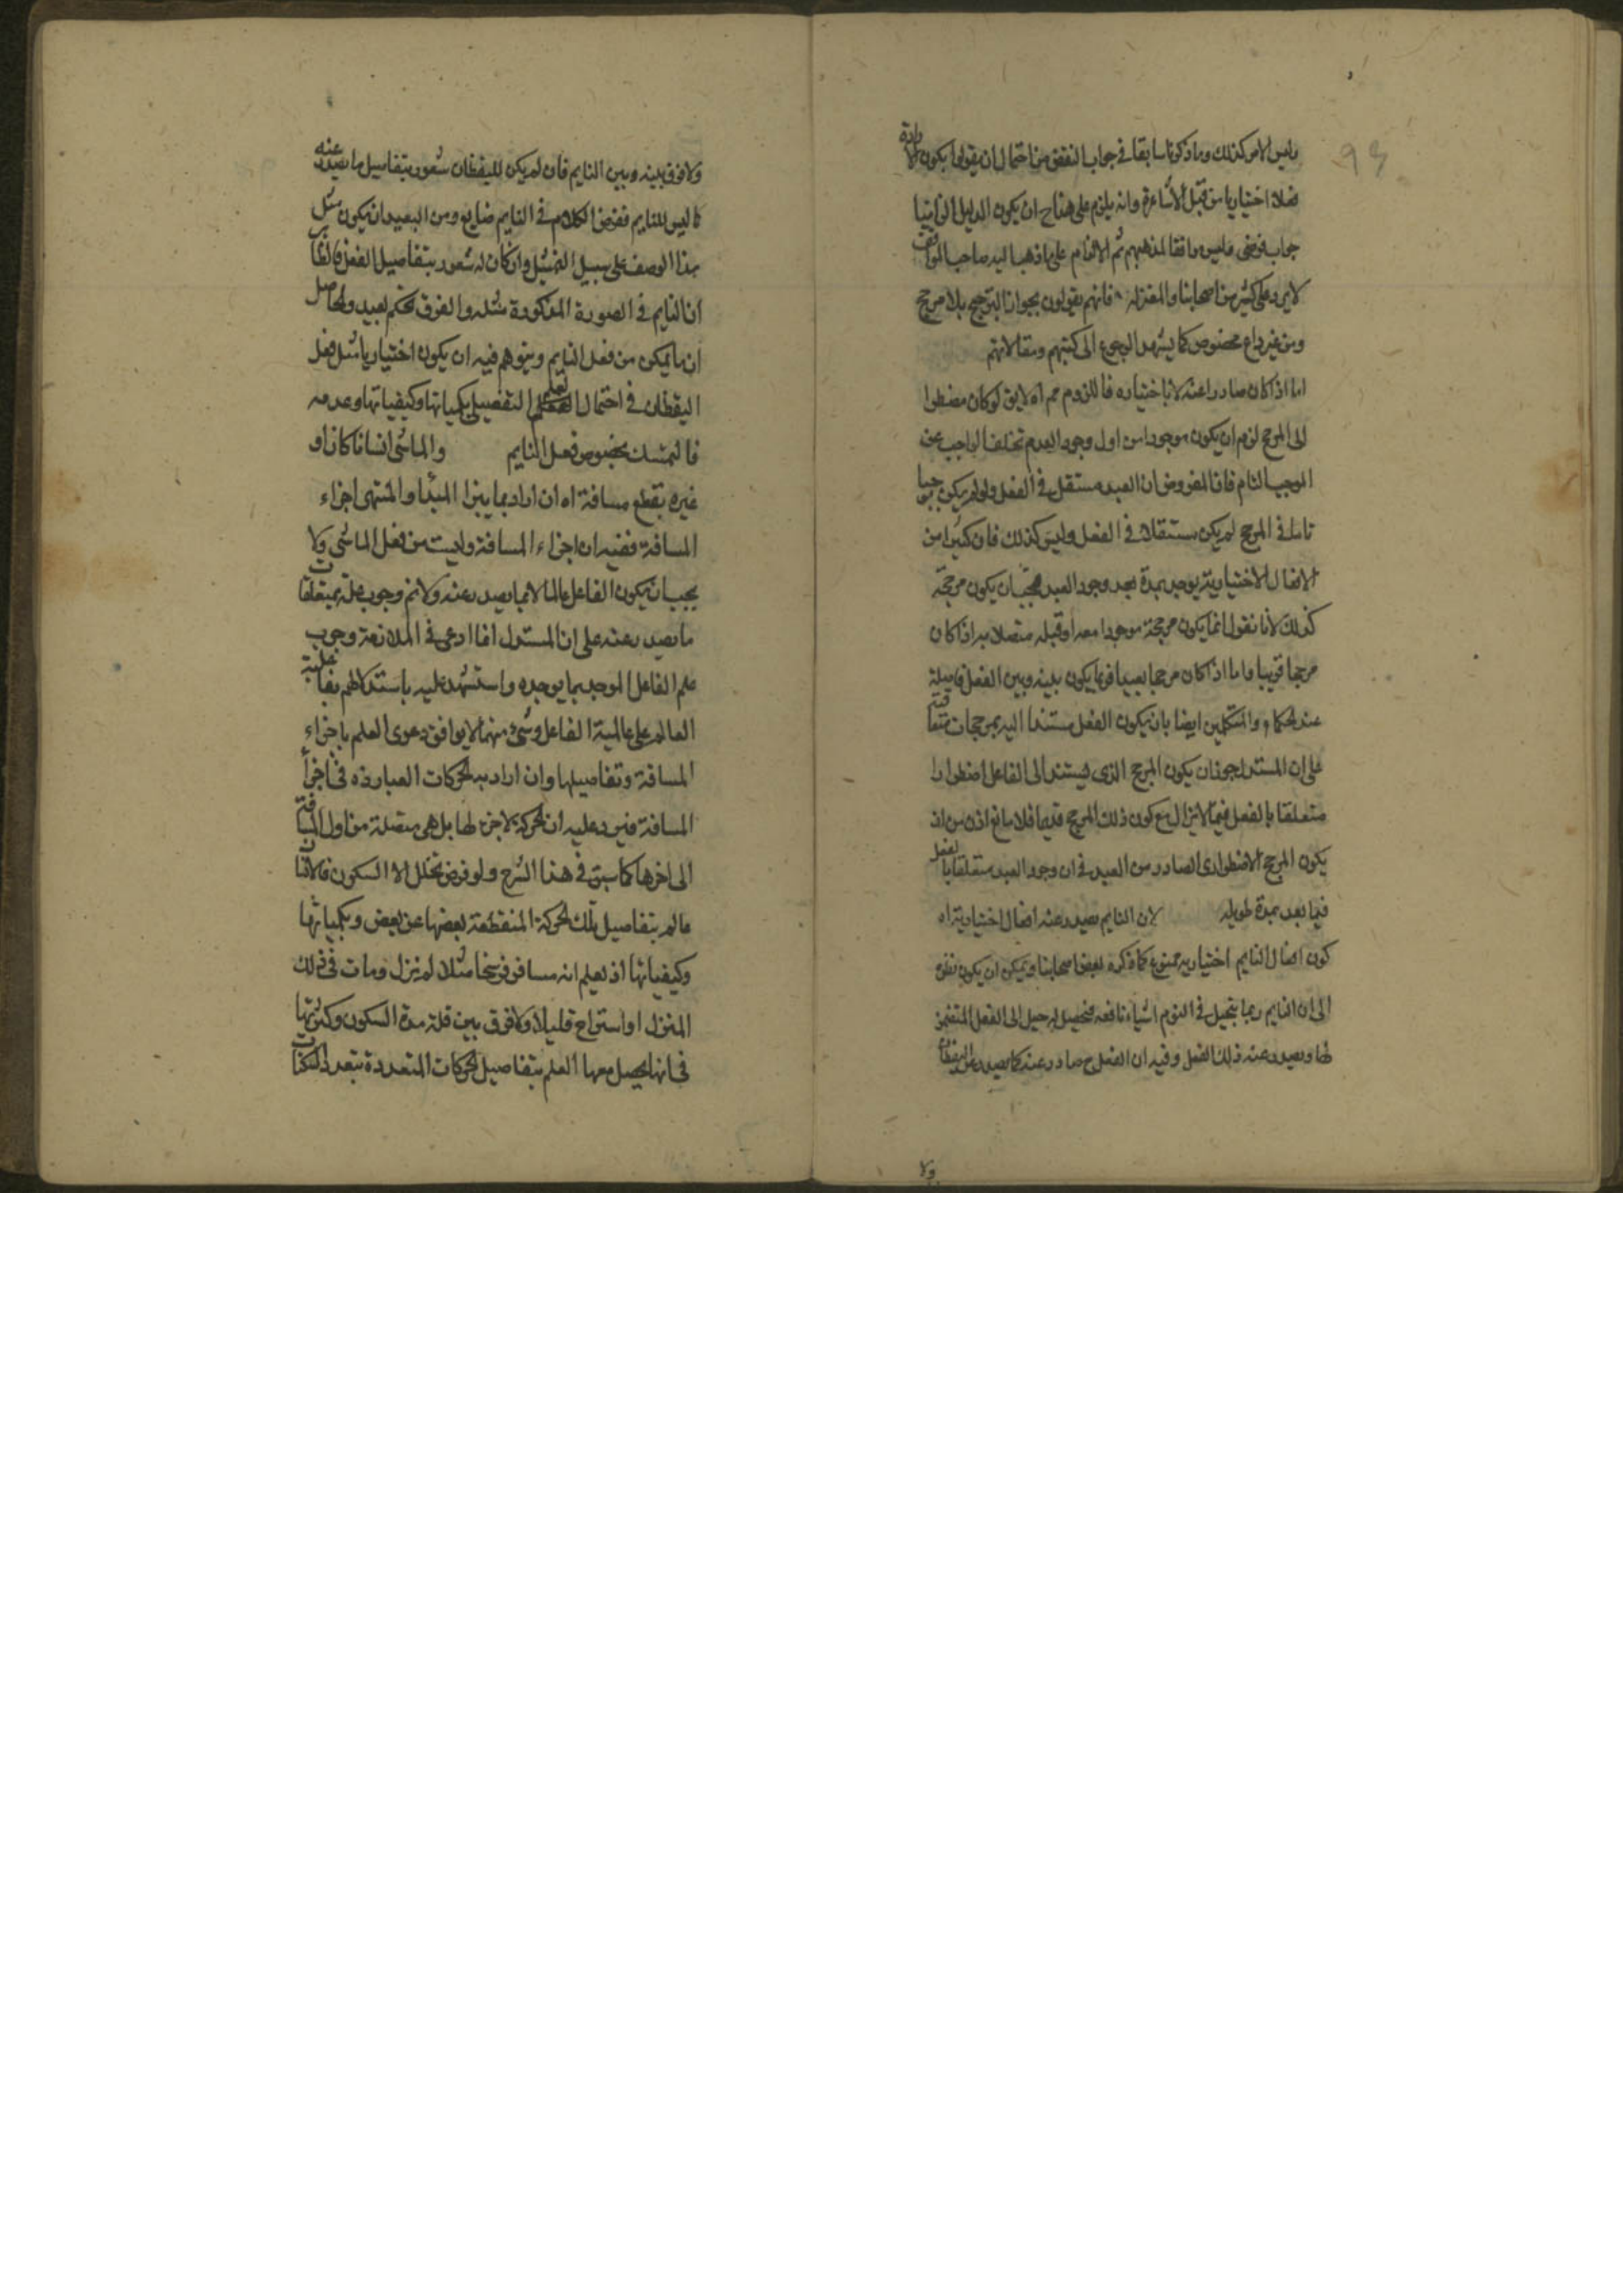 وليس الامر كذلك وما ذكرنا سابقا في جواب النقض من احتمال ان يقول يكون الارادة
فعلا اختياريا من قبل الاشاعرة وانه يلزم على هذا ح ان يكون الدليل الزاميا
جواب فرضي وليس موافقا لمذهبهم ثم الالزام على ما ذهب اليه صاحب المواقف
لا يرد على كثير من اصحابنا والمعتزلة فانهم يقولون بجواز الترجيح بلا مرجح
ومن غير داع مخصوص كما يشهد الرجوع الى كتبهم ومقالاتهم
اما اذا كان صادرا عنه لا باختياره فاللزوم مم اه لا يق لو كان مضطرا
الى المرجح لزم ان يكون موجودا من اول وجود العدم تخلف الواجب عن
الموجب التام فان المفروض ان العبد مستقل في الفعل ولو لم يكن موجبا
تاما في المرجح لم يكن مستقلا في الفعل وليس كذلك فان كثيرا من
الافعال الاختيارية يوجد بمدة بعد وجود العبد فيجب ان يكون مرجحه
كذلك لانا نقول انما يكون مرجحه موجودا معه او قبله متصلا به اذا كان
مرجحا قريبا واما اذا كان مرجحا بعيدا فربما يكون بينه وبين الفعل فاصلة
عند الحكماء والمتكلمين ايضا بان يكون الفعل مستندا اليه بمرجحات متعاقبة
على ان المستدل جوز ان يكون المرجح الذي يستند الى الفاعل اضطرارا
متعلقا بالفعل فيما لا يزال مع كون ذلك المرجح قديما فلا مانع اذن من ان
يكون المرجح الاضطراري الصادر من العبد في ان وجود العبد متعلقا بالفعل
فيما بعد بمدة طويلة لان النايم يصدر عنه افعال اختيارية اه
كون افعال النايم اختيارية ممنوع كما ذكره بعض اصحابنا ويمكن ان يكون نظره
الى ان النايم ربما يتخيل في النوم اشياء نافعه فيحصل له ميل الى الفعل المتضمن
لها ويصدر عنه ذلك الفعل وفيه ان الفعل ح صادر عنه كما يصدر عن اليقظان
ولا
ولا فرق بينه وبين النايم فان لم يكن لليقظان شعور بتفاصيل ما يصدر عنه
كما ليس للنايم ففرض الكلام في النايم ضايع ومن البعيد ان يكون مثل
هذا الوصف على سبيل التمثيل وان كان له شعور بتفاصيل الفعل فالظاهر
ان النايم في الصورة المذكورة مثله والفرق تحكم بعيد والحاصل
ان ما يمكن من فعل النايم ويتوهم فيه ان يكون اختياريا مثل فعل
اليقظان في احتمال العلم التفصيلي بكمياتها وكيفياتها وعدمه
فالتمسك بخصوص فعل النايم والماشي انسانا كان او
غيره يقطع مسافة اه ان اراد بما بين المبدا والمنتهى اجزاء
المسافة ففيه ان اجزاء المسافة وليست من فعل الماشي ولا
يجب ان يكون الفاعل عالما الا بما يصدر عنه ولا نم وجوب علمه بمتعلقات
ما يصدر عنه على ان المستدل انما ادعى في الملازمة وجوب
علم الفاعل الموجد بما يوجده واستشهد عليه باستدلالهم بفاعلية
العالم على عالمية الفاعل وشئ منهما لا يوافق دعوى العلم باجزاء
المسافة وتفاصيلها وان اراد به الحركات الصادرة في اجزاء
المسافة فيرد عليه ان الحركة لا جزء لها بل هي متصلة من اول المسافة
الى اخرها كما سبق في هذا الشرح ولو فرض تخلل السكون فالانسان
عالم بتفاصيل تلك الحركة المنقطعة بعضها عن بعض وبكمياتها
وكيفياتها اذ يعلم انه مسافر فرسخا مثلا ثم نزل ومات في ذلك
المنزل او استراح قليلا ولا فرق بين قلة مدة السكون وكثرتها
في انها يحصل معها العلم بتفاصيل الحركات المتعددة بتعدد السكنات